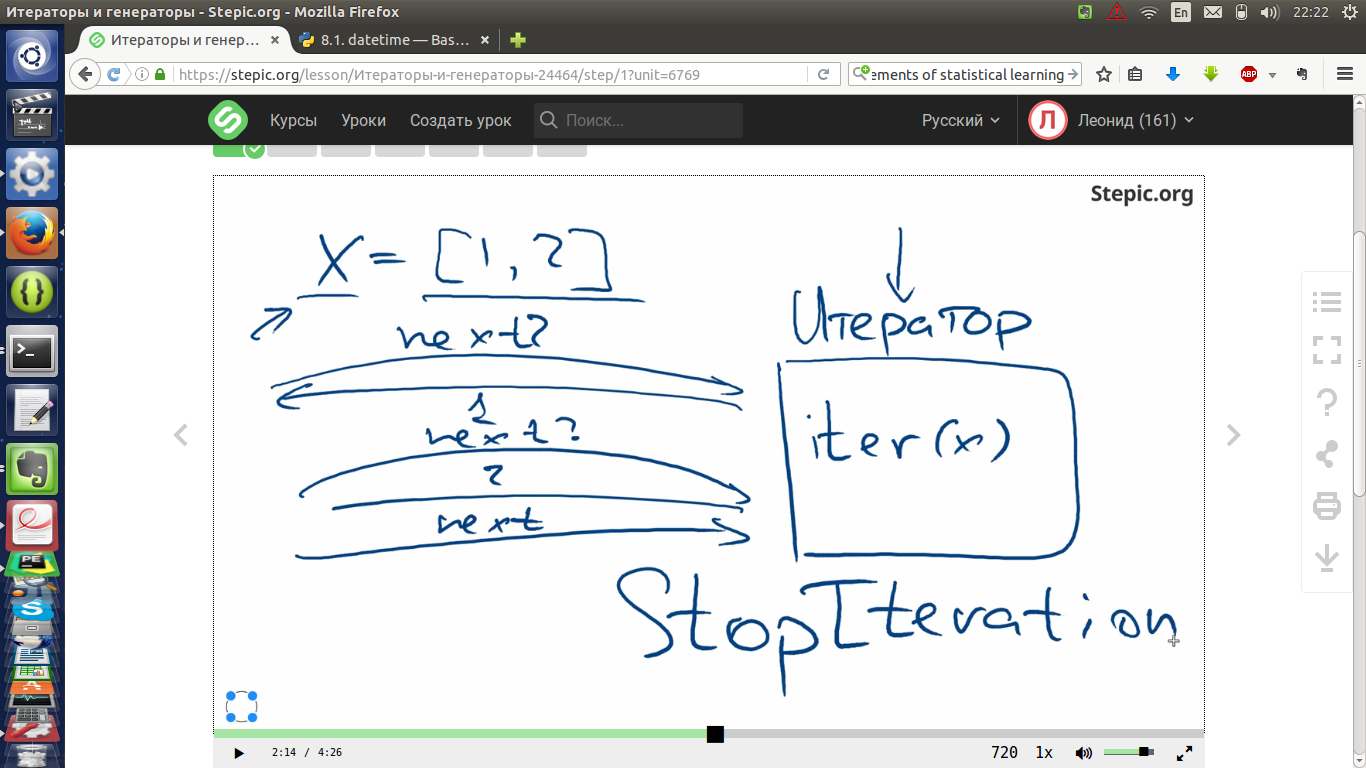 Итераторы и генераторы - Stepic.org - Mozilla Firefox
En
22:22
Итераторы и генер... ×
8.1. datetime — Bas... ×
https://stepic.org/lesson/Итераторы-и-генераторы-24464/step/1?unit=6769
ements of statistical learning
ABP
Курсы
Уроки
Создать урок
Поиск...
Русский
Л
Леонид (161)
Stepic.org
X = [1, 2]
Итератор
next?
1
iter(x)
next?
2
next
StopIteration
2:14 / 4:26
720
1x